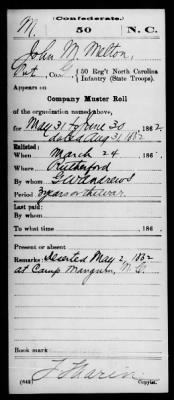 (Confederate.)
M. 50 N.C.
John M. Melton,
Pvt, Co. 50 Reg't North Carolina Infantry (State Troops).
Appears on
Company Muster Roll
of the organization named above,
for May 31 to June 30 1862.
dated Aug 31, 1862
Enlisted:
When March 24 186
Where Rutherford
By whom G W Andrews
Period 3 years or the war.
Last paid:
By whom
To what time 186
Present or absent
Remarks: Deserted May 2, 1862
at Camp Mangum, N. C.
Book mark:
(642) Copyist.